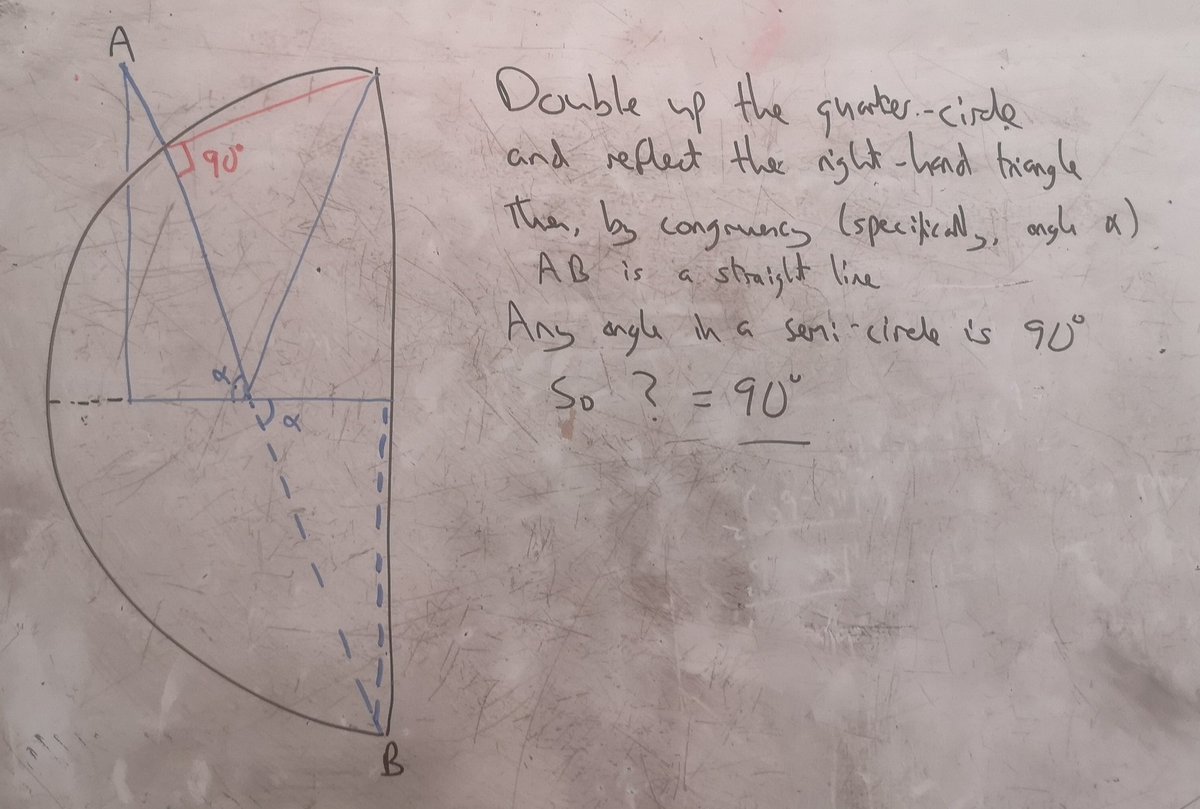 A
90°
α
α
B
Double up the quarter-circle
and reflect the right-hand triangle
Then, by congruency (specifically, angle α)
AB is a straight line
Any angle in a semi-circle is 90°
So ? = 90°